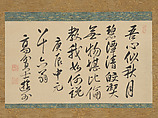 吾心似秋月
碧潭清皎潔
無物堪比倫
教我如何說
庚辰中元
八十六翁
高遊外